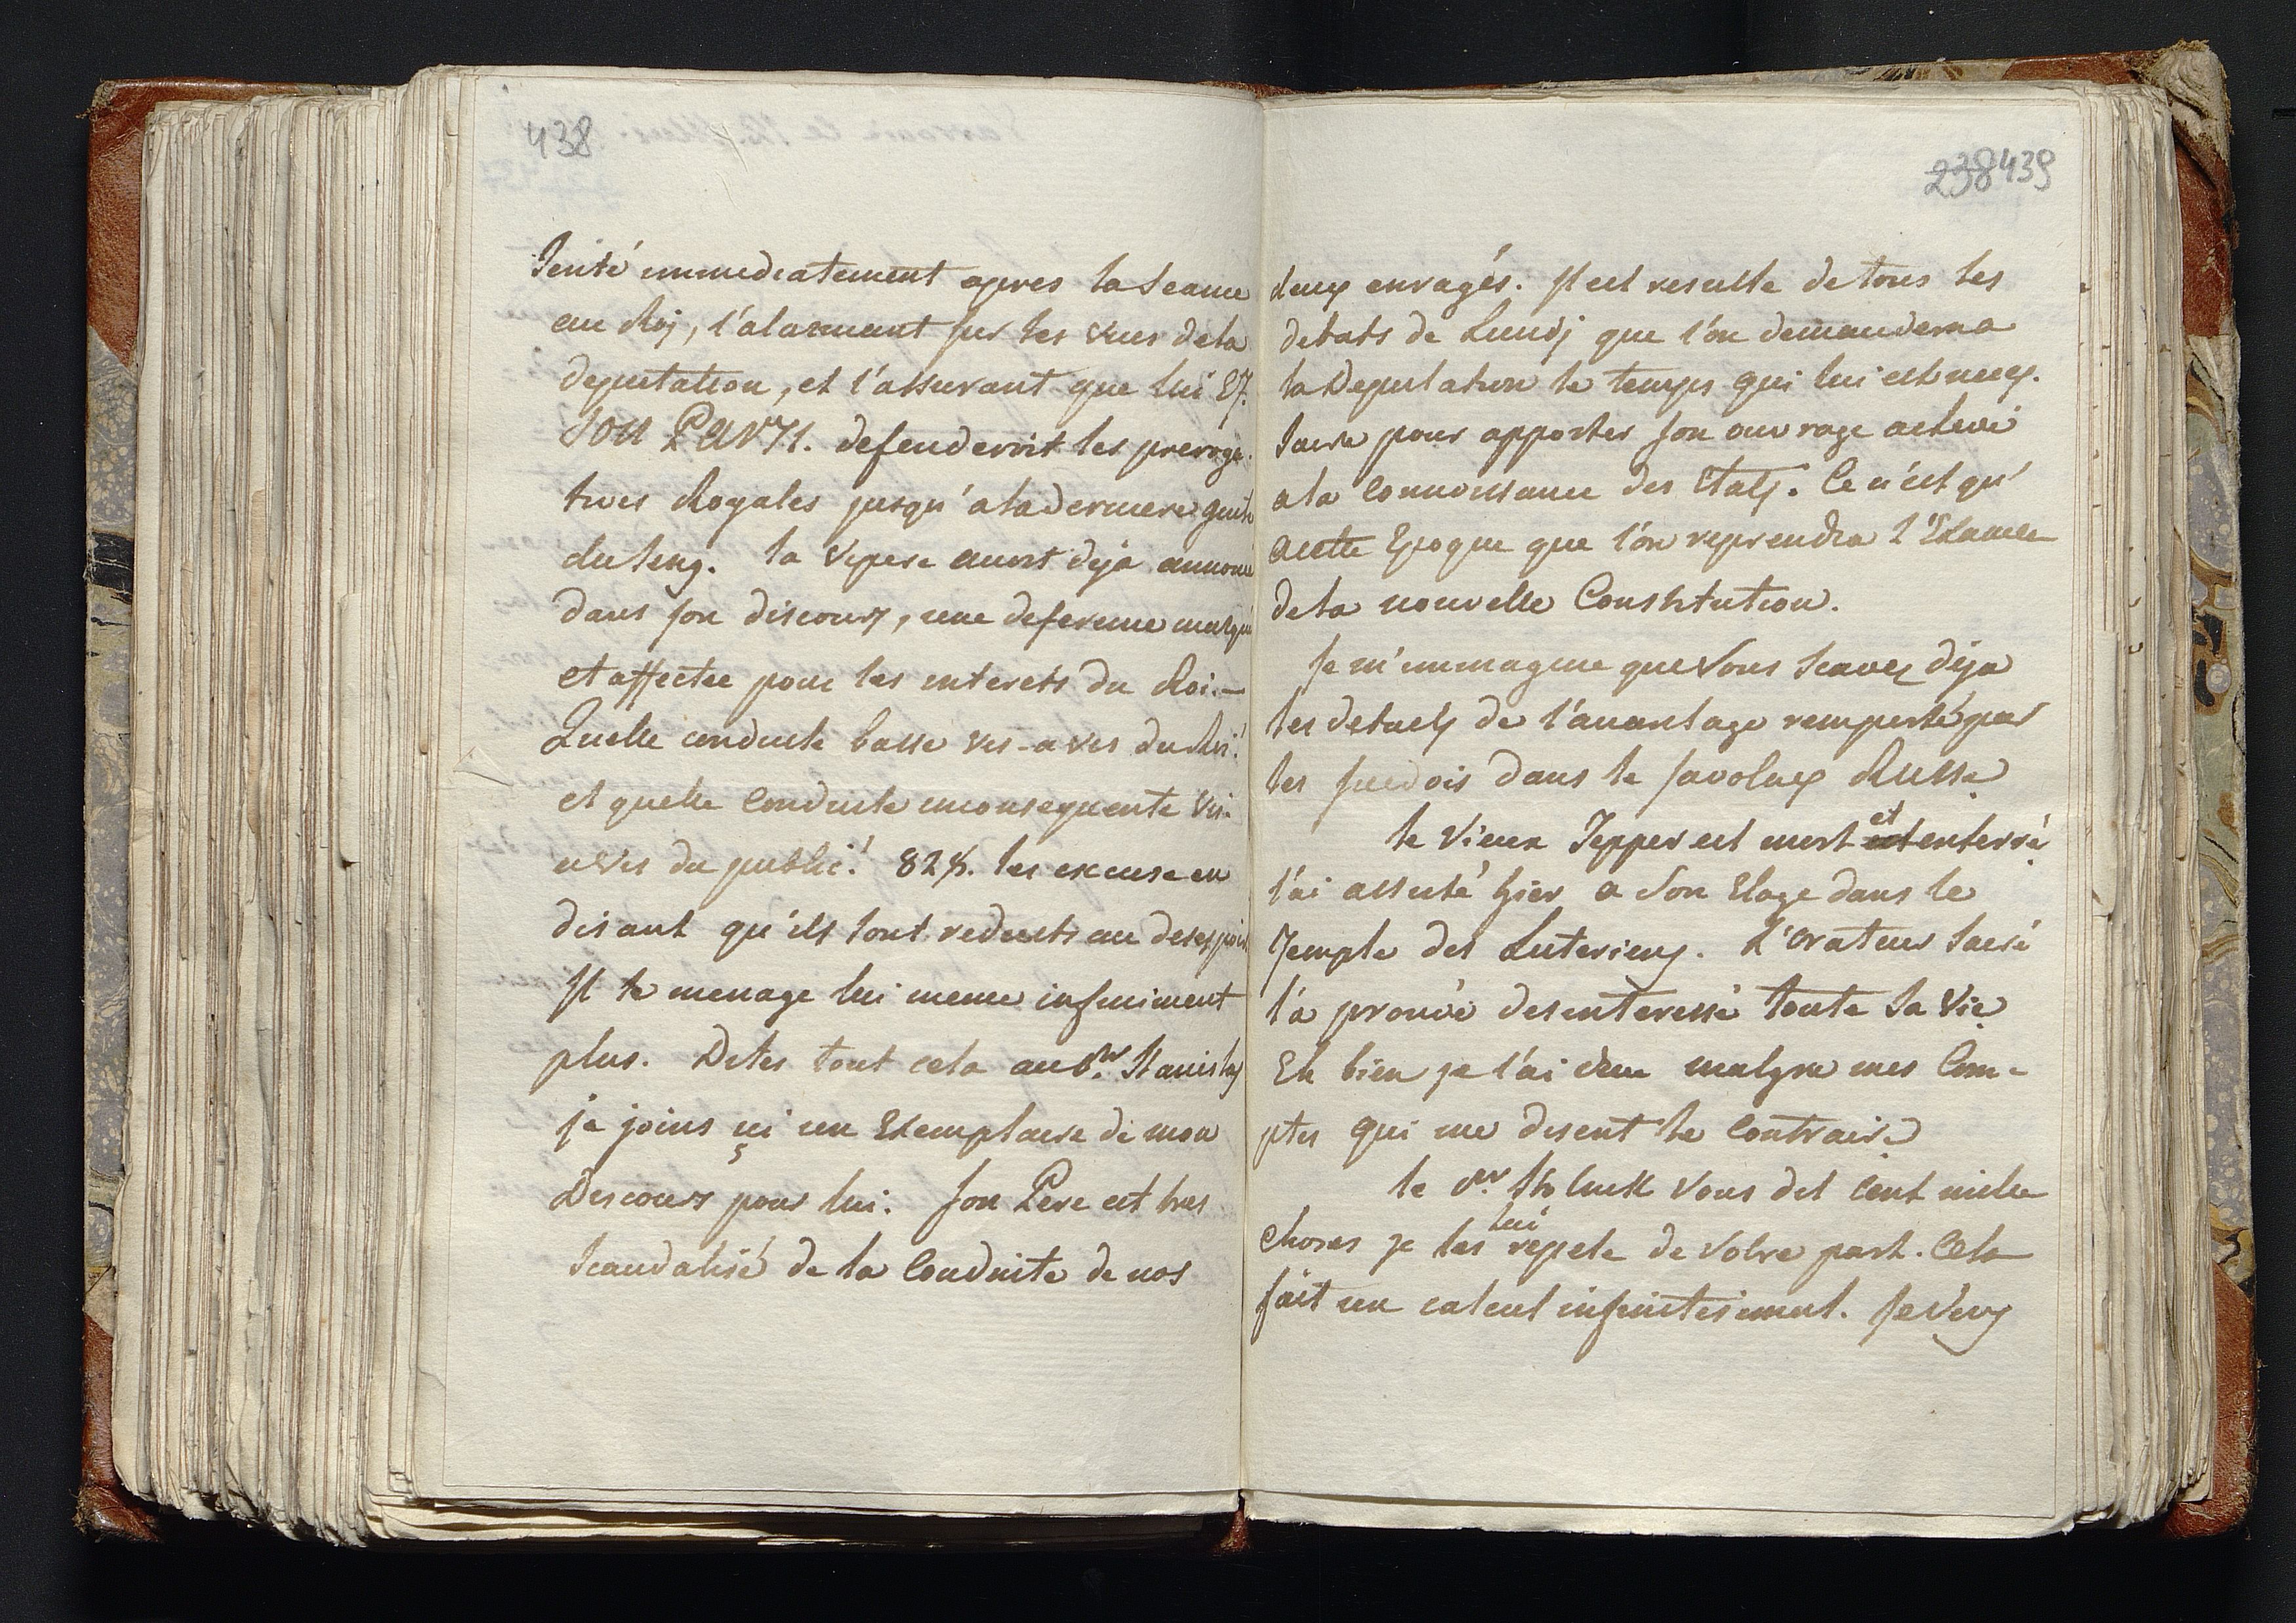 438
senté immediatement apres la Seance
au Roj, l'alarmant sur les vues dela
deputation, et l'assurant que lui ET.
SON PARTI. defenderoit les preroga-
tives Royales jusqu'a la derniere goute
du seng. la Vipere avoit deja annoncé
dans son discours, une deference marqué
et affectée pour les interets du Roi.—
Quelle conduite basse vis-a vis du Roi!
et quelle Conduite inconsequente vis-
a vis du public! 828. les excuse en
disant qu'ils sont reduits au desespoir
Il le menage lui meme infiniment
plus. Dites tout cela au Cte. Stanislas
je joins içi un Exemplaire de mon
Discours pour lui. Son Pere est tres
Scandalisé de la Conduite de nos
238 439
deux enragés. Il est resulté de tous les
debats de Lundj que l'on demandera a
la Deputation le temps qui lui est neces-
saire pour apporter son ouvrage achevé
a la Connoissance des Etats. Ce n'est qu'
acette Epoque que l'on reprendra l'Examen
dela nouvelle Constitution.
Je m'immagine que Vous Scavez deja
les details de l'avantage remporté par
les suedois dans le savolax Russe
le Vieux Tepper est mort et enterré
J'ai assisté hier a Son Eloge dans le
Temple des Luteriens. L'Orateur Sacré
l'a prouvé desinteressé toute Sa Vie
Eh bien je l'ai cru malgré mes Com-
ptes qui me disent le Contraire
le Cte. dit Cent mille
Choses je les lui repete de Votre part. Cela
fait un calcul infinitesimal. Je Veux